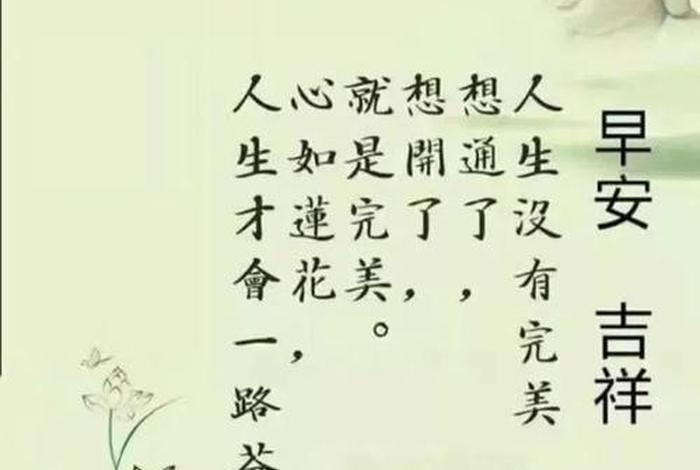 早安 吉祥
人生沒有完美
想通了，
想開了，
就是完美。
心如蓮花，
人生才會一路